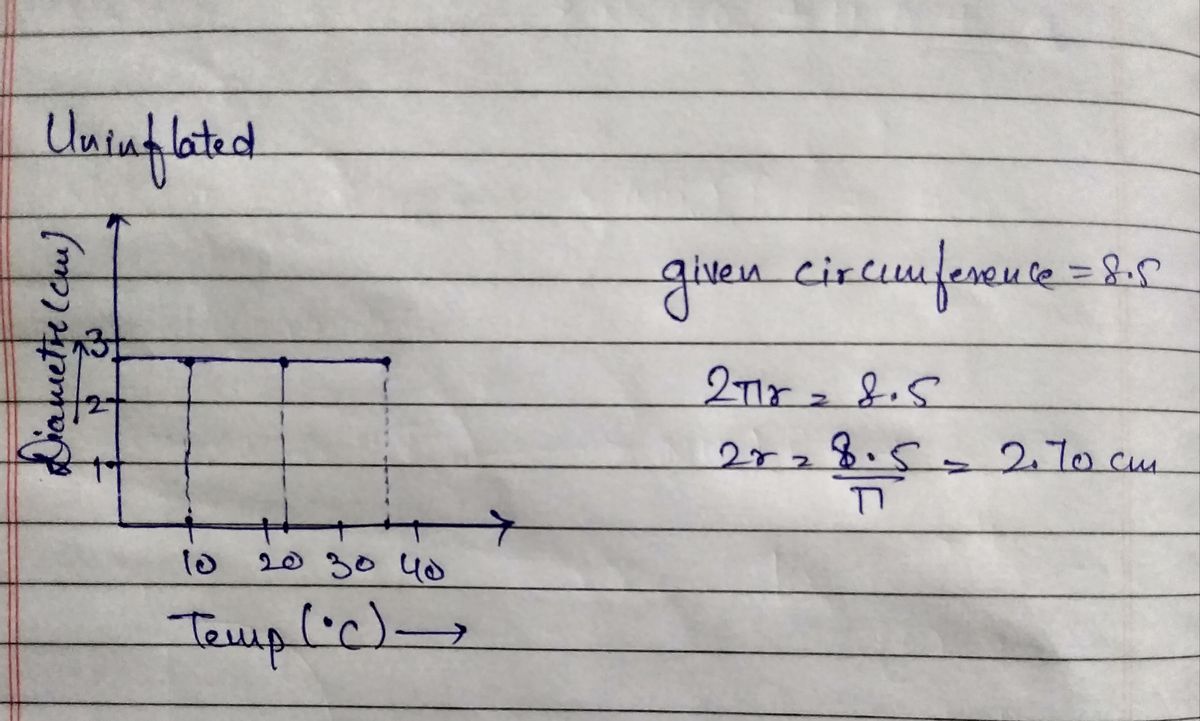 Uninflated
Diametre (cm)
3
2
1
10 20 30 40
Temp (°C) →
given circumference = 8.5
2πr = 8.5
2r = 8.5/π = 2.70 cm